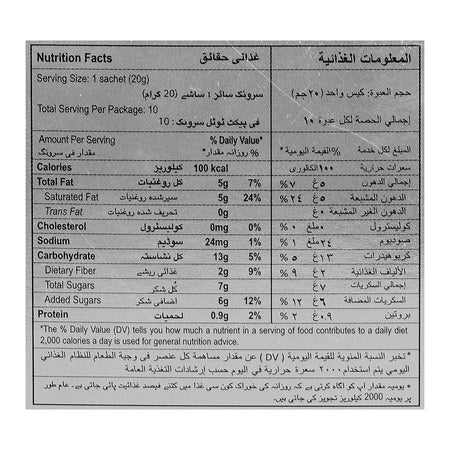 Nutrition Facts غذائی حقائق المعلومات الغذائية
Serving Size: 1 sachet (20g) سرونگ سائز : ۱ ساشے (20 گرام) حجم العبوة: كيس واحد (٢٠جم)
Total Serving Per Package: 10 فی پیکٹ ٹوٹل سرونگ : 10 إجمالي الحصة لكل عبوة ١٠
Amount Per Serving مقدار فی سرونگ % Daily Value* % روزانہ مقدار* %القيمة اليومية* المبلغ لكل خدمة
Calories کیلوریز 100 kcal ١٠٠كالوري سعرات حرارية
Total Fat کل روغنیات 5g 7% ٧ % ٥غ إجمالي الدهون
Saturated Fat سیرشدہ روغنیات 5g 24% ٢٤ % ٥غ الدهون المشبعة
Trans Fat تحریف شدہ روغنیات 0g ٠غ الدهون الغير المشبعة
Cholesterol کولیسٹرول 0mg 0% ٠ % ٠ملغ كوليسترول
Sodium سوڈیم 24mg 1% ١ % ٢٤ملغ صوديوم
Carbohydrate کل نشاستہ 13g 5% ٥ % ١٣غ كربوهيدرات
Dietary Fiber غذائی ریشے 2g 9% ٩ % ٢غ الألياف الغذائية
Total Sugars کُل شکر 7g ٧غ إجمالي السكريات
Added Sugars اضافی شکر 6g 12% ١٢ % ٦غ السكريات المضافة
Protein لحمیات 0.9g 2% ٢ % ٠.٩غ بروتين
*The % Daily Value (DV) tells you how much a nutrient in a serving of food contributes to a daily diet
2,000 calories a day is used for general nutrition advice.
*تخبر النسبة المئوية للقيمة اليومية (DV) عن مقدار مساهمة كل عنصر في وجبة الطعام للنظام الغذائي
اليومي يتم استخدام ٢٠٠٠ سعرة حرارية في اليوم حسب إرشادات التغذية العامة
* یومیہ مقدار آپ کو آگاہ کرتی ہے کہ روزانہ کی خوراک کون سی غذا میں کتنے فیصد غذائیت پائی جاتی ہے۔ عام طور
پر یومیہ 2000 کیلوریز تجویز کی جاتی ہیں۔